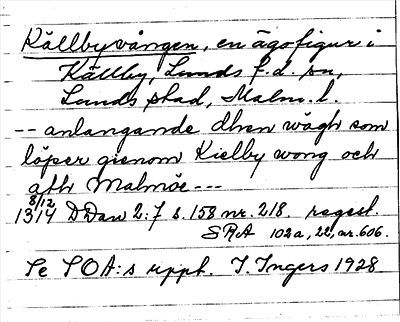 Källbyvången, en ägofigur i
Källby, Lunds f.d. sn,
Lunds stad, Malm. l.
-- anlangande dhen wägh som
löper gienom Kielby wong och
ath Malmöe ---
8/12 1314 DDan 2:7 s. 158 nr. 218. regest.
SRA 102a, 22, nr. 606.
Se SOA:s uppt. I. Ingers 1928